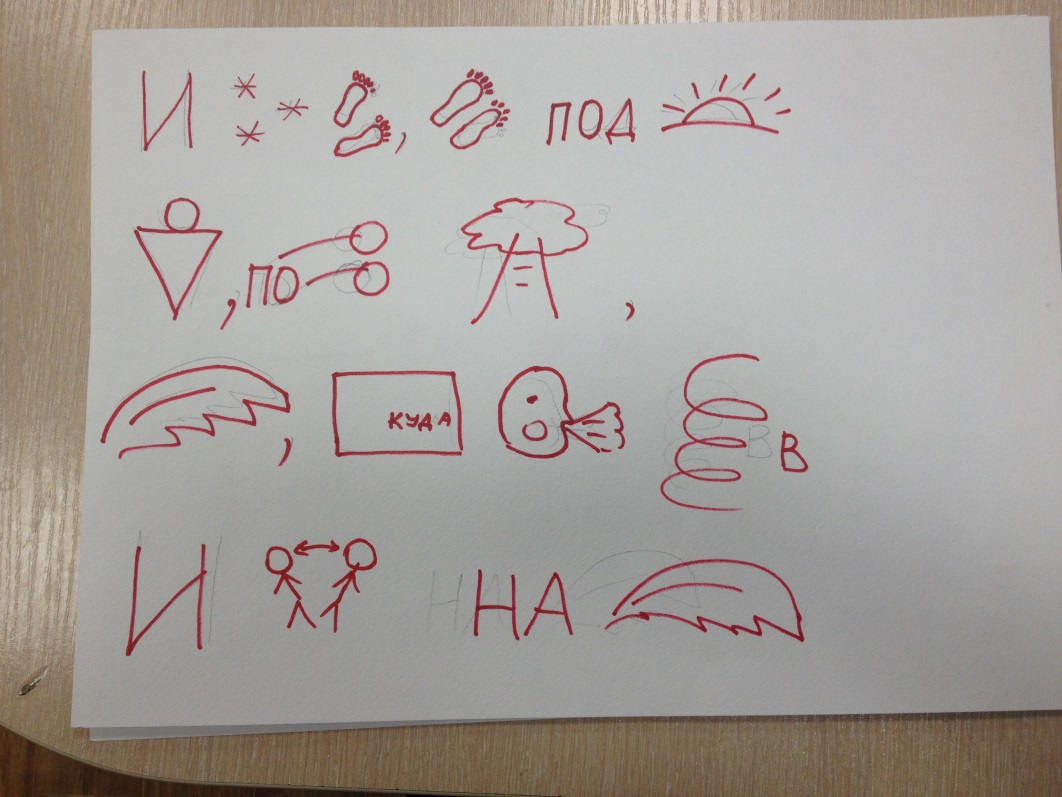 И , ПОД
, ПО ,
, КУДА В
И НА